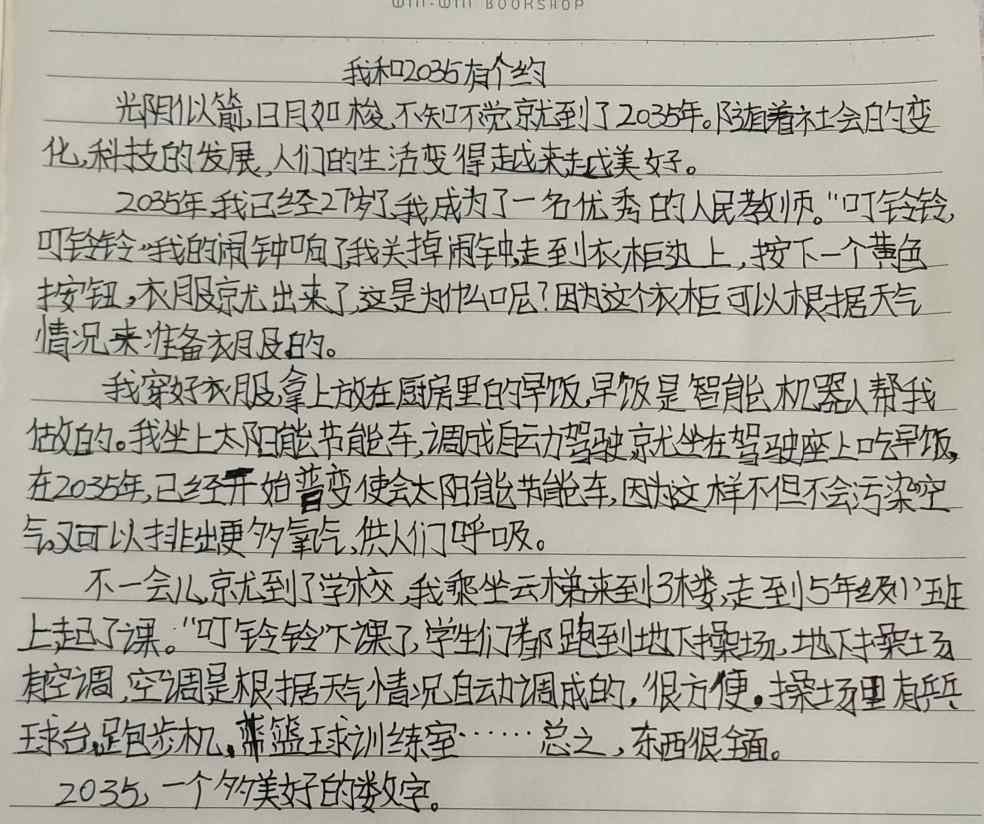 WIN-WIN BOOKSHOP
我和2035有个约
光阴似箭,日月如梭,不知不觉就到了2035年。随着社会的变
化,科技的发展,人们的生活变得越来越美好。
2035年,我已经27岁了,我成为了一名优秀的人民教师。“叮铃铃,
叮铃铃”我的闹钟响了,我关掉闹钟,走到衣柜边上,按下一个黄色
按钮,衣服就出来了,这是为什么呢?因为这个衣柜可以根据天气
情况来准备衣服的。
我穿好衣服,拿上放在厨房里的早饭,早饭是智能机器人帮我
做的。我坐上太阳能节能车,调成自动驾驶,就坐在驾驶座上吃早饭,
在2035年,已经开始普变使会太阳能节能车,因为这样不但不会污染空
气,又可以排出更多氧气,供人们呼吸。
不一会儿,就到了学校,我乘坐云梯来到3楼,走到5年级(1)班
上起了课。“叮铃铃”下课了,学生们都跑到地下操场,地下操场
有空调,空调是根据天气情况自动调成的,很方便。操场里有乒乓
球台,跑步机,篮球训练室……总之,东西很全面。
2035,一个多美好的数字。